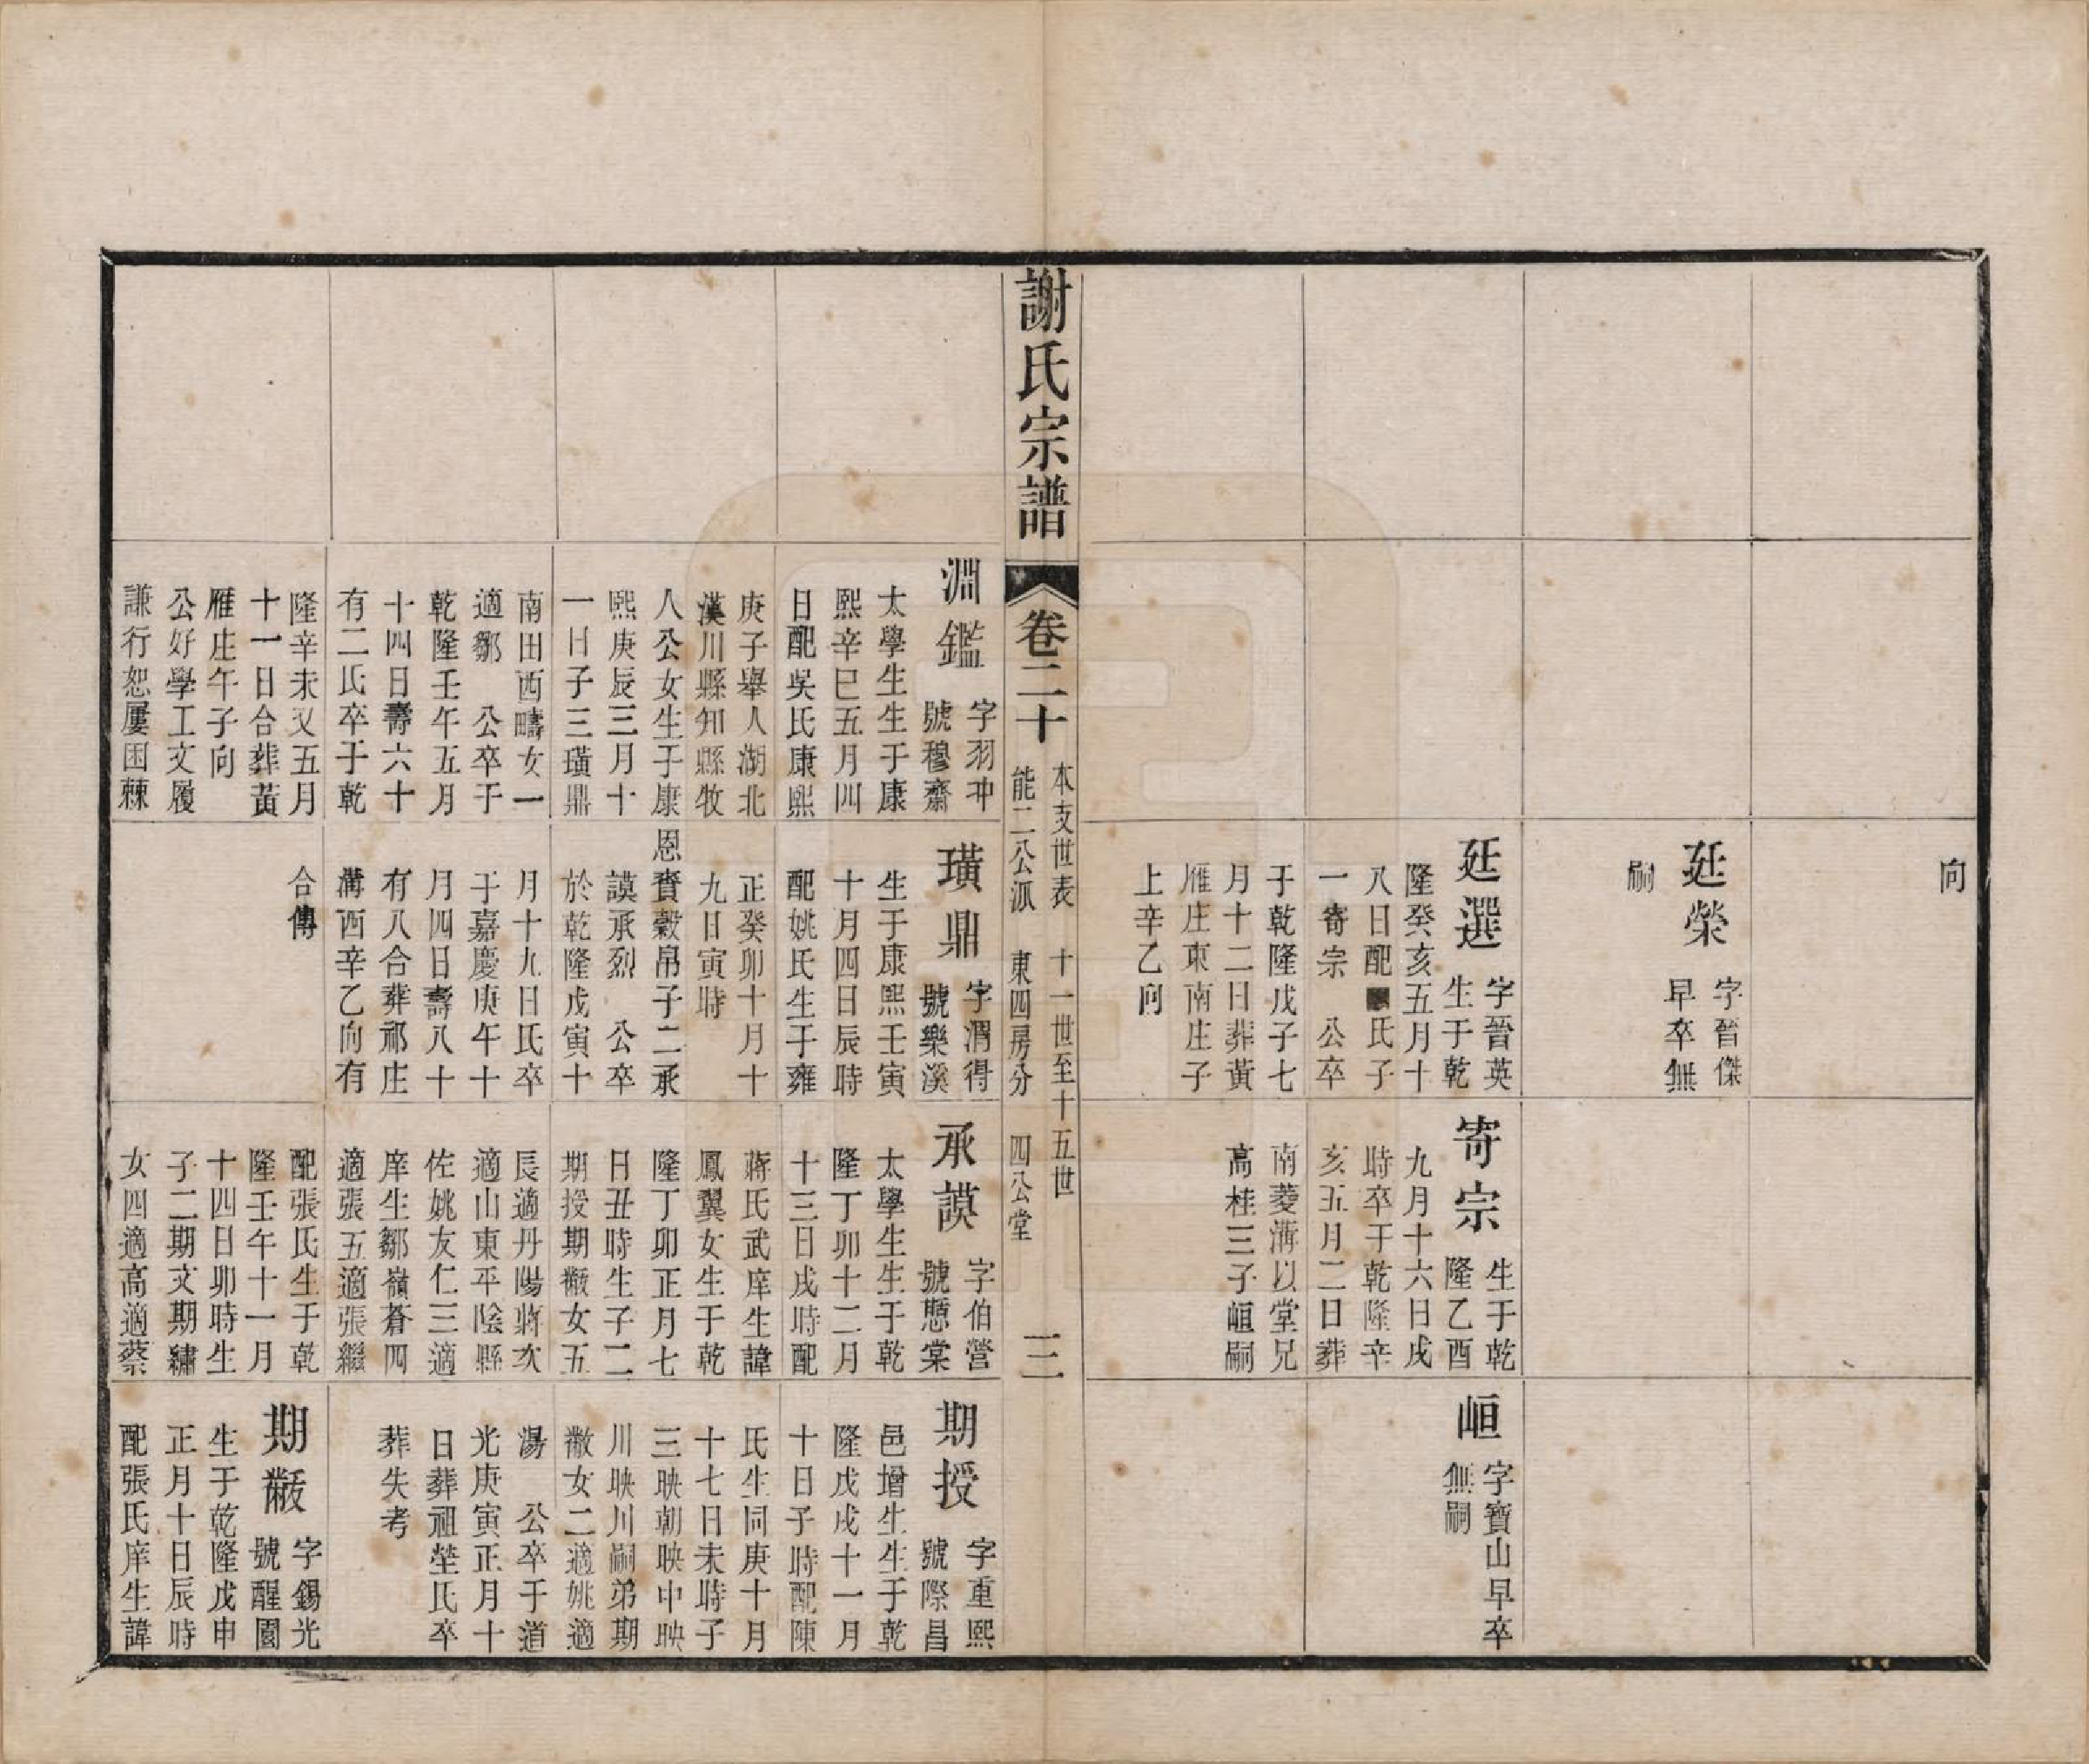 向
廷榮
字晉傑
早卒無
嗣
廷選
字晉英
生于乾
隆癸亥五月十
八日配 氏子
一寄宗　公卒
于乾隆戊子七
月十二日葬黃
雁庄東南庄子
上辛乙向
寄宗
生于乾
隆乙酉
九月十六日戌
時卒于乾隆辛
亥五月二日葬
南菱溝以堂兄
高桂三子峘嗣
峘
字寶山早卒
無嗣
謝氏宗譜
卷二十
本支世表　十一世至十五世
能二公派　東四房分　四公堂
三
淵鑑
字羽冲
號穆齋
太學生生于康
熙辛巳五月四
日配吳氏康熙
庚子舉人湖北
漢川縣知縣牧
人公女生于康
熙庚辰三月十
一日子三璜鼎
南田西疇女一
適鄒　公卒于
乾隆壬午五月
十四日壽六十
有二氏卒于乾
隆辛未又五月
十一日合葬黃
雁庄午子向
公好學工文履
謙行恕屢困棘
璜鼎
字渭得
號樂溪
生于康熙壬寅
十月四日辰時
配姚氏生于雍
正癸卯十月十
九日寅時
恩賚穀帛子二承
謨承烈　公卒
於乾隆戊寅十
月十九日氏卒
于嘉慶庚午十
月四日壽八十
有八合葬祁庄
溝西辛乙向有
合傳
承謨
字伯營
號憩棠
太學生生于乾
隆丁卯十二月
十三日戌時配
蔣氏武庠生諱
鳳翼女生于乾
隆丁卯正月七
日丑時生子二
期授期黻女五
長適丹陽蔣次
適山東平陰縣
佐姚友仁三適
庠生鄒嶺蒼四
適張五適張繼
配張氏生于乾
隆壬午十一月
十四日卯時生
子二期文期繡
女四適高適蔡
期授
字重熙
號際昌
邑增生生于乾
隆戊戌十一月
十日子時配陳
氏生同庚十月
十七日未時子
三映朝映中映
川映川嗣弟期
黻女二適姚適
湯　公卒于道
光庚寅正月十
日葬祖塋氏卒
葬失考
期黻
字錫光
號醒園
生于乾隆戊申
正月十日辰時
配張氏庠生諱